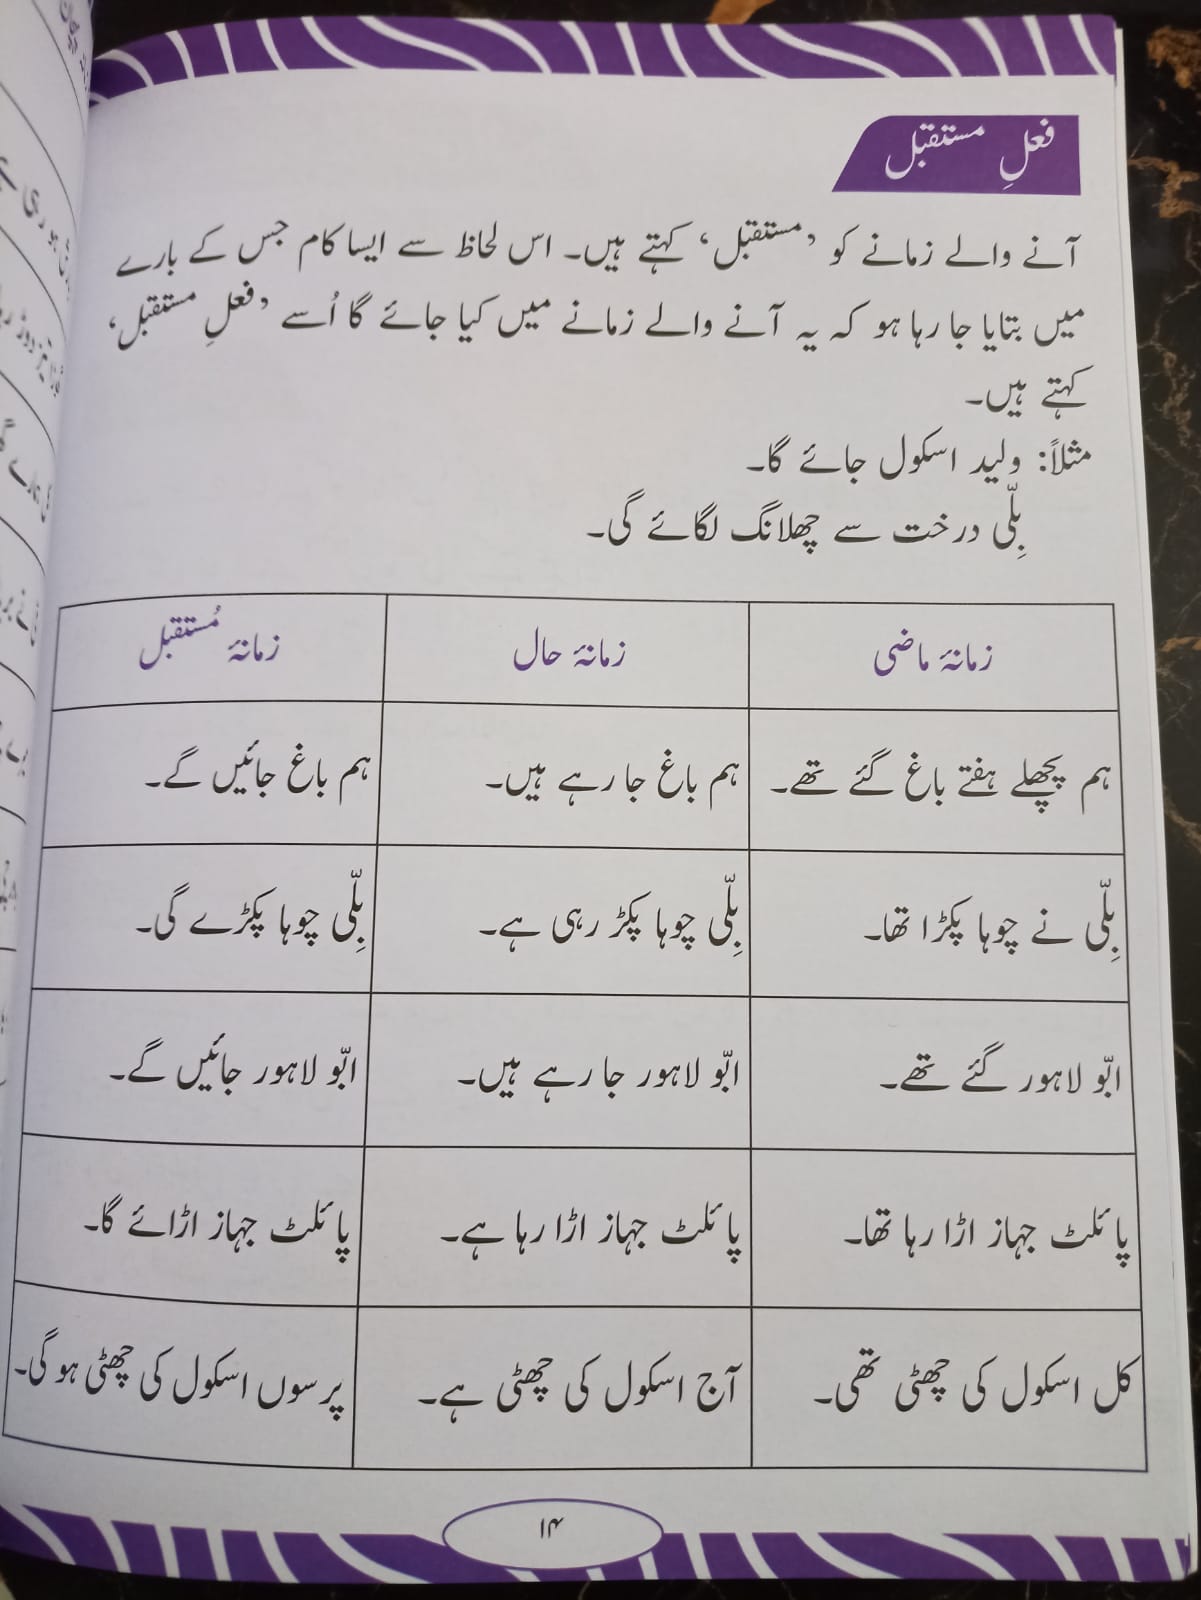 فعلِ مستقبل
آنے والے زمانے کو ’مستقبل‘ کہتے ہیں۔ اس لحاظ سے ایسا کام جس کے بارے
میں بتایا جا رہا ہو کہ یہ آنے والے زمانے میں کیا جائے گا اُسے ’فعلِ مستقبل‘
کہتے ہیں۔
مثلاً: ولید اسکول جائے گا۔
بِلّی درخت سے چھلانگ لگائے گی۔
زمانۂ ماضی زمانۂ حال زمانۂ مُستقبل
ہم پچھلے ہفتے باغ گئے تھے۔ ہم باغ جا رہے ہیں۔ ہم باغ جائیں گے۔
بِلّی نے چوہا پکڑا تھا۔ بِلّی چوہا پکڑ رہی ہے۔ بِلّی چوہا پکڑے گی۔
ابّو لاہور گئے تھے۔ ابّو لاہور جا رہے ہیں۔ ابّو لاہور جائیں گے۔
پائلٹ جہاز اڑا رہا تھا۔ پائلٹ جہاز اڑا رہا ہے۔ پائلٹ جہاز اڑائے گا۔
کل اسکول کی چھٹی تھی۔ آج اسکول کی چھٹی ہے۔ پرسوں اسکول کی چھٹی ہو گی۔
۱۴